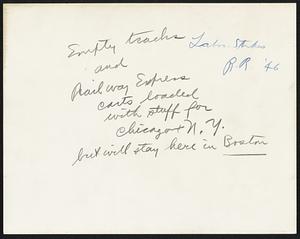 Empty tracks
and
Railway Express
carts loaded
with stuff for
Chicago + N.Y.
but will stay here in Boston
Labor Strikes
R.R. '46